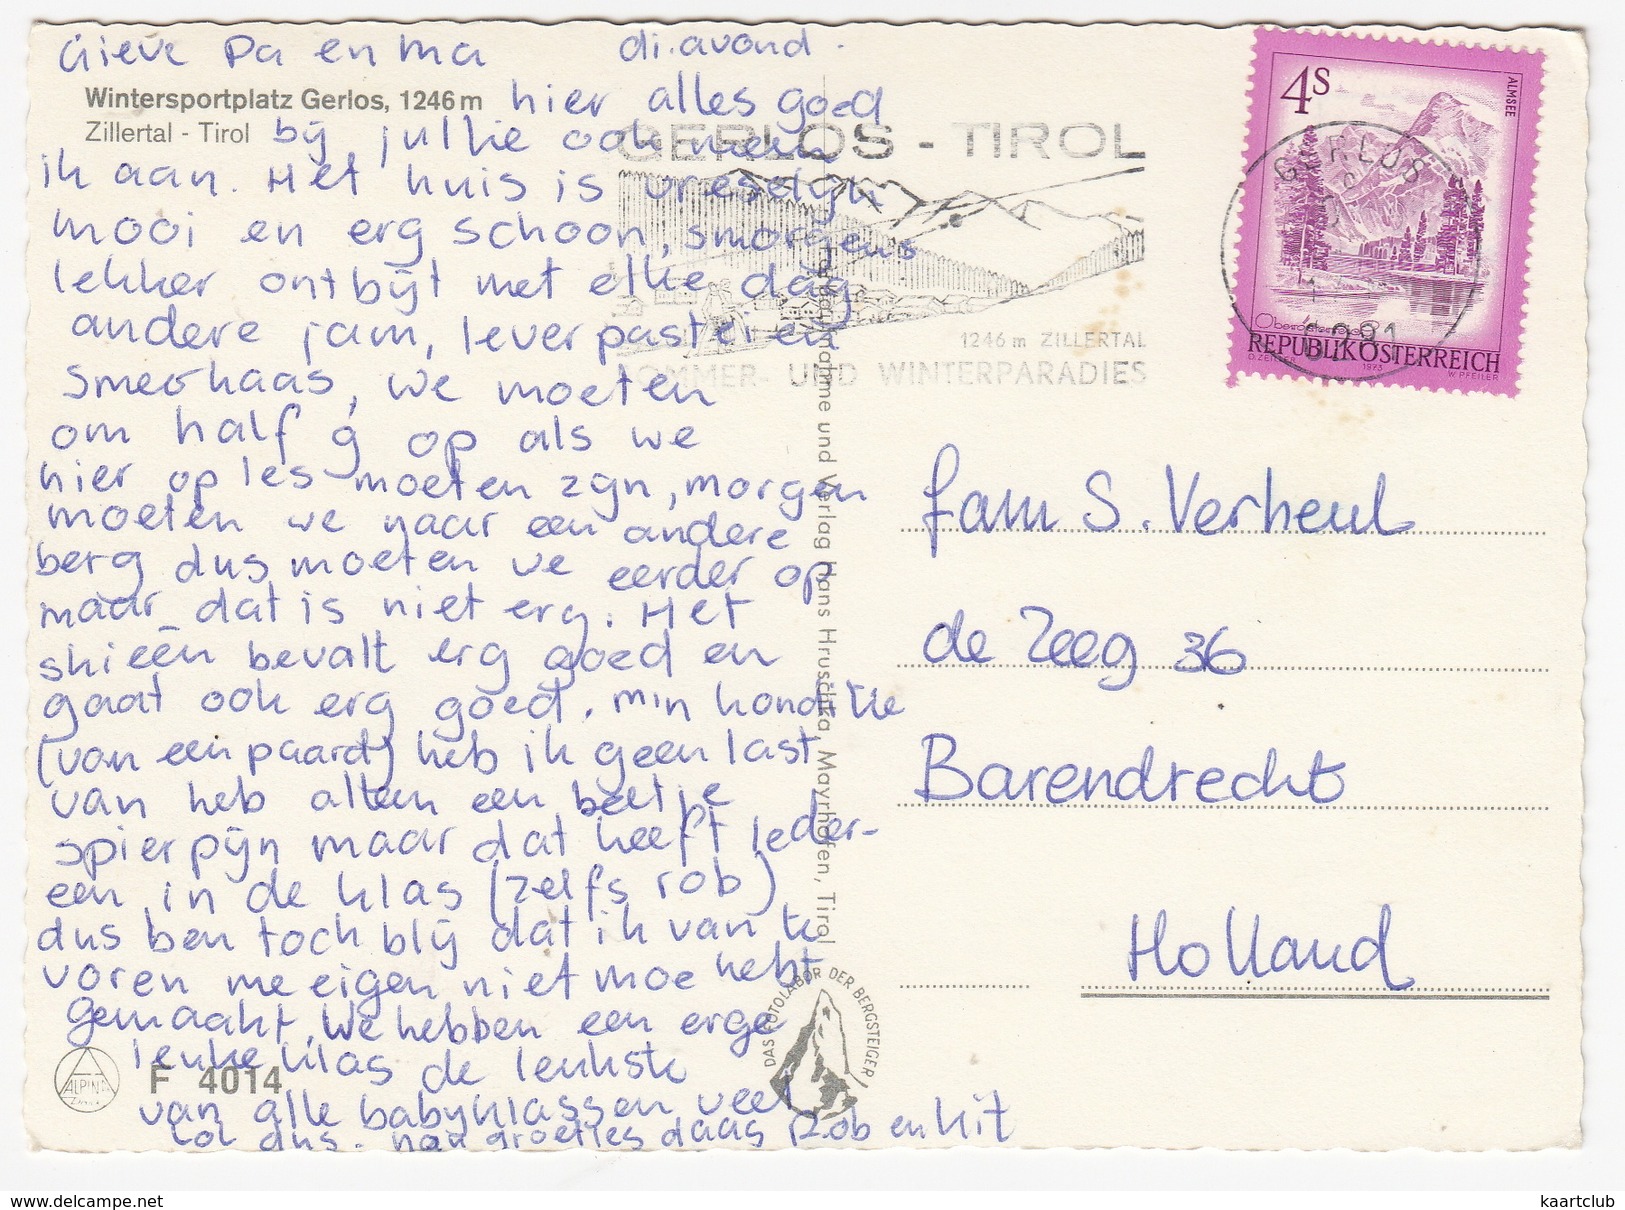 Lieve Pa en ma di.avond.
Wintersportplatz Gerlos, 1246 m
hier alles goed
Zillertal - Tirol
bij jullie ook neem
ik aan. Het huis is vreselijk
mooi en erg schoon, smorgens
lekker ontbijt met elke dag
andere jam, leverpastei en
smeerkaas, we moeten
om half 9 op als we
hier op les moeten zijn, morgen
moeten we naar een andere
berg dus moeten we eerder op
maar dat is niet erg. Het
skieën bevalt erg goed en
gaat ook erg goed. mijn
(van een paard) heb ik geen last
van heb alleen een beetje
spierpijn maar dat heeft ieder-
een in de klas (zelfs rob)
dus ben toch blij dat ik van te
voren me eigen niet moe hebt
gemaakt. We hebben een erge
leuke klas de leukste
van alle babyklassen veel
lol dus. nou groetjes daag Rob en Kit
GERLOS - TIROL
1246 m ZILLERTAL
SOMMER- UND WINTERPARADIES
4S
ALMSEE
GERLOS
REPUBLIK ÖSTERREICH
O. ZEILLER 1973 W. PFEILER
und Verlag Hans Hruschka Mayrhofen, Tirol
fam S. Verheul
de Zeeg 36
Barendrecht
Holland
DAS FOTOLABOR DER BERGSTEIGER
ALPIN
F 4014
www.delcampe.net
kaartclub